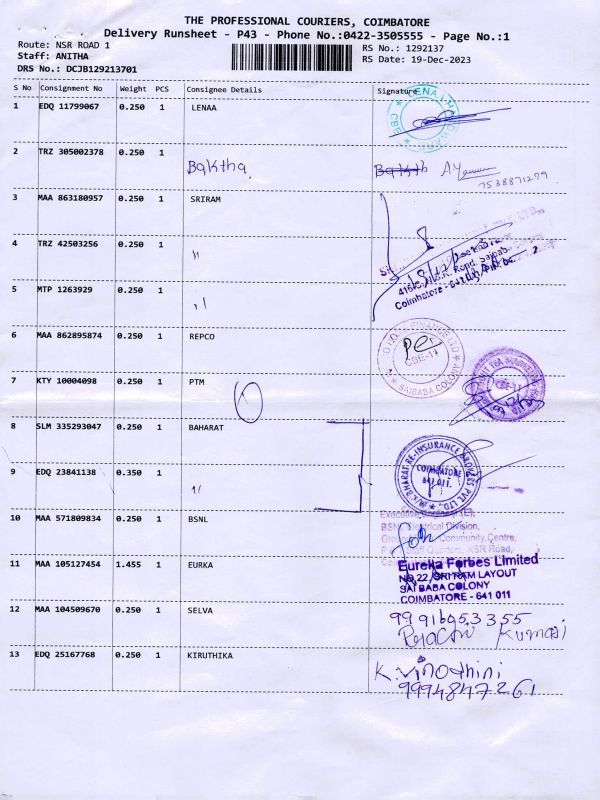 THE PROFESSIONAL COURIERS, COIMBATORE
Delivery Runsheet - P43 - Phone No.:0422-3505555 - Page No.:1
Route: NSR ROAD 1
RS No.: 1292137
Staff: ANITHA
RS Date: 19-Dec-2023
DRS No.: DCJB129213701
S No Consignment No Weight PCS Consignee Details Signature
1 EDQ 11799067 0.250 1 LENAA
CBE
2 TRZ 305002378 0.250 1
Baktha
7538871299
3 MAA 863180957 0.250 1 SRIRAM
4 TRZ 42503256 0.250 1 "
N.S.R. Road, Saibaba
Coimbatore -
5 MTP 1263929 0.250 1 "
6 MAA 862895874 0.250 1 REPCO
CBE-11
SAIBABA COLONY
7 KTY 10004098 0.250 1 PTM
CBE-11
8 SLM 335293047 0.250 1 BAHARAT
M.K.BHARAT RE-INSURANCE BROKERS PVT LTD.,
COIMBATORE
641 011.
9 EDQ 23841138 0.350 1 "
10 MAA 571809834 0.250 1 BSNL
Executive
BSNL Electrical Division,
Community Centre,
NSR Road,
11 MAA 105127454 1.455 1 EURKA
Eureka Forbes Limited
NO.22, SRI RAM LAYOUT
SAI BABA COLONY
COIMBATORE - 641 011
12 MAA 104509670 0.250 1 SELVA
Kumari
13 EDQ 25167768 0.250 1 KIRUTHIKA
K.Vinodhini
9994847261